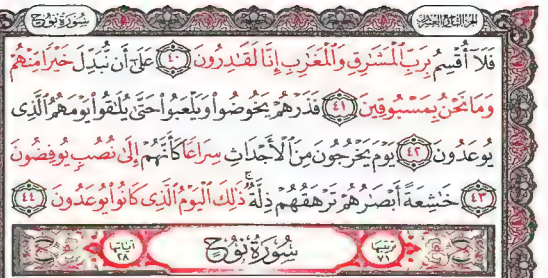 سُورَةُ نُوحٍ
الجزء التاسع والعشرون
فَلَآ أُقْسِمُ بِرَبِّ ٱلْمَشَٰرِقِ وَٱلْمَغَٰرِبِ إِنَّا لَقَٰدِرُونَ ٤٠ عَلَىٰٓ أَن نُّبَدِّلَ خَيْرًا مِّنْهُمْ
وَمَا نَحْنُ بِمَسْبُوقِينَ ٤١ فَذَرْهُمْ يَخُوضُوا۟ وَيَلْعَبُوا۟ حَتَّىٰ يُلَٰقُوا۟ يَوْمَهُمُ ٱلَّذِى
يُوعَدُونَ ٤٢ يَوْمَ يَخْرُجُونَ مِنَ ٱلْأَجْدَاثِ سِرَاعًا كَأَنَّهُمْ إِلَىٰ نُصُبٍ يُوفِضُونَ
٤٣ خَٰشِعَةً أَبْصَٰرُهُمْ تَرْهَقُهُمْ ذِلَّةٌ ۚ ذَٰلِكَ ٱلْيَوْمُ ٱلَّذِى كَانُوا۟ يُوعَدُونَ ٤٤
ترتيبها ٧١ سُورَةُ نُوحٍ آياتها ٢٨